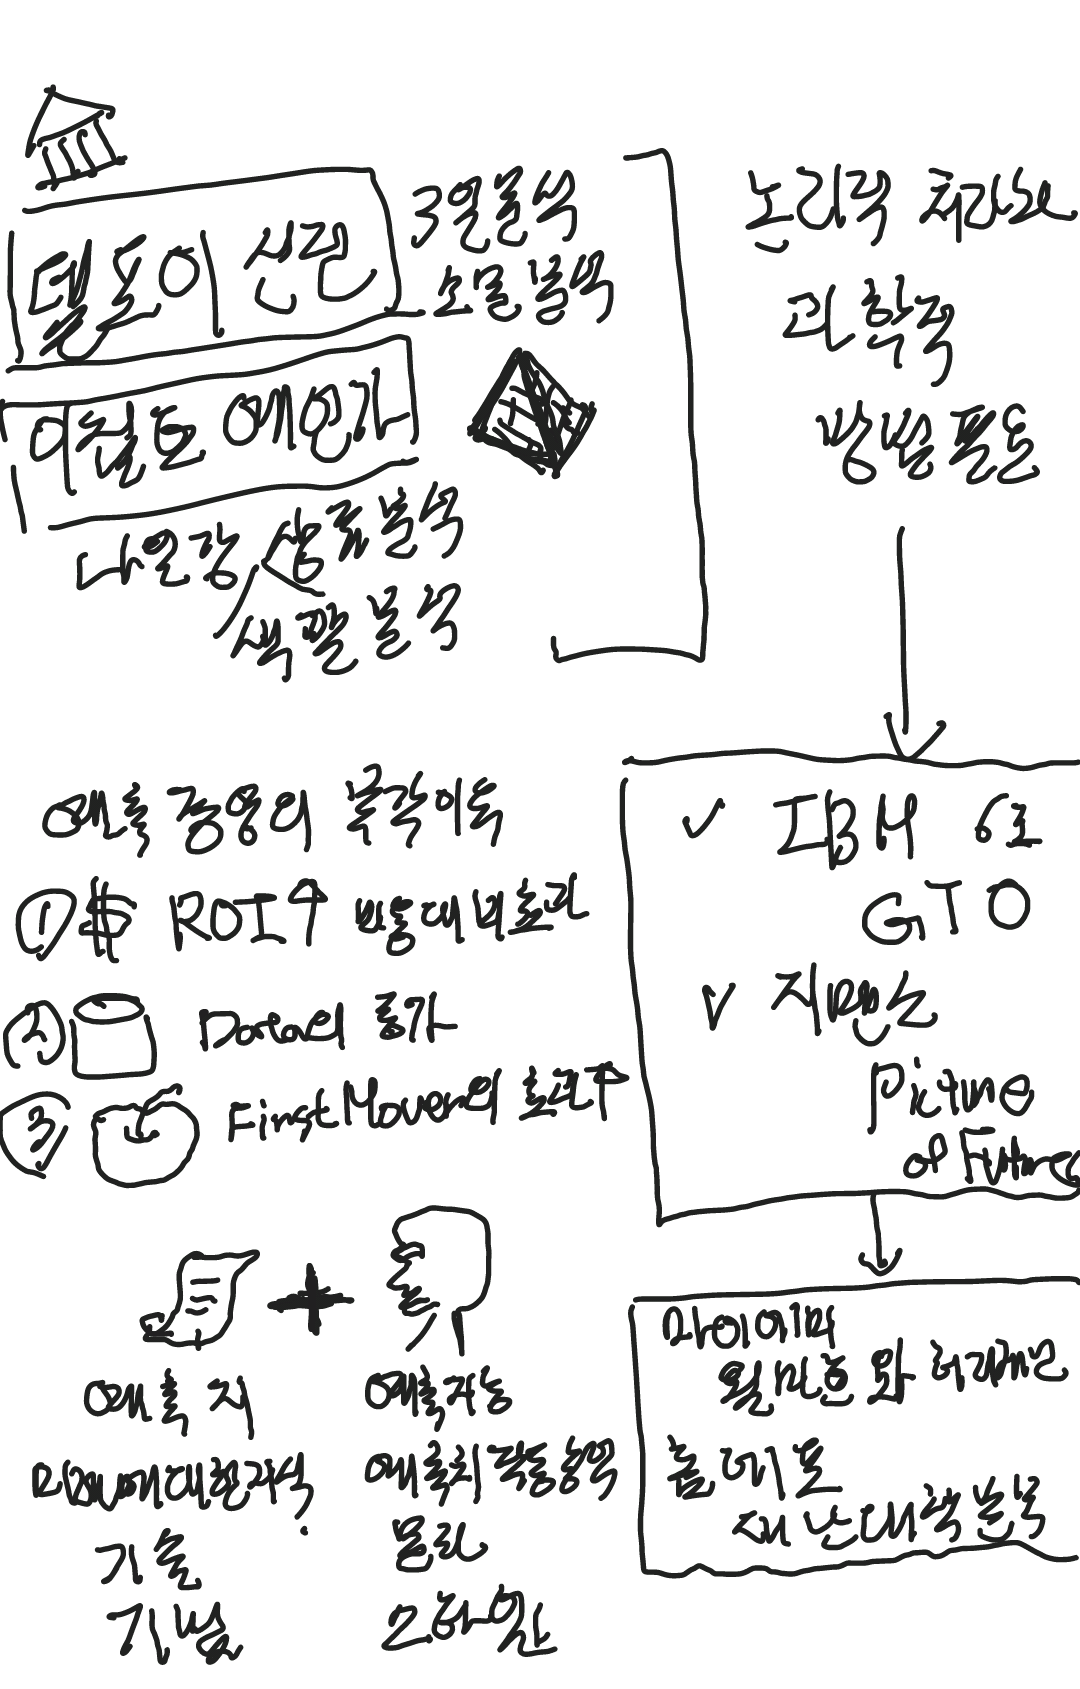 델포이 신전
3일분석
소문 분석
이집트 예언가
나일강 상류분석
색깔 분석
논리적
과학적
방법 필요
예측 경영의 부각이유
① $ ROI↑ 비용대비효과
② Data의 증가
③ First Mover의 효과↑
✓ IBM 으로
GTO
✓ 지멘스
Picture
of Future
마이애미
월마트와 허리케인
플로리다
재난대책 분석
예측 지
미래에대한지식
기술
기법
예측자능
예측치 작동능력
논리